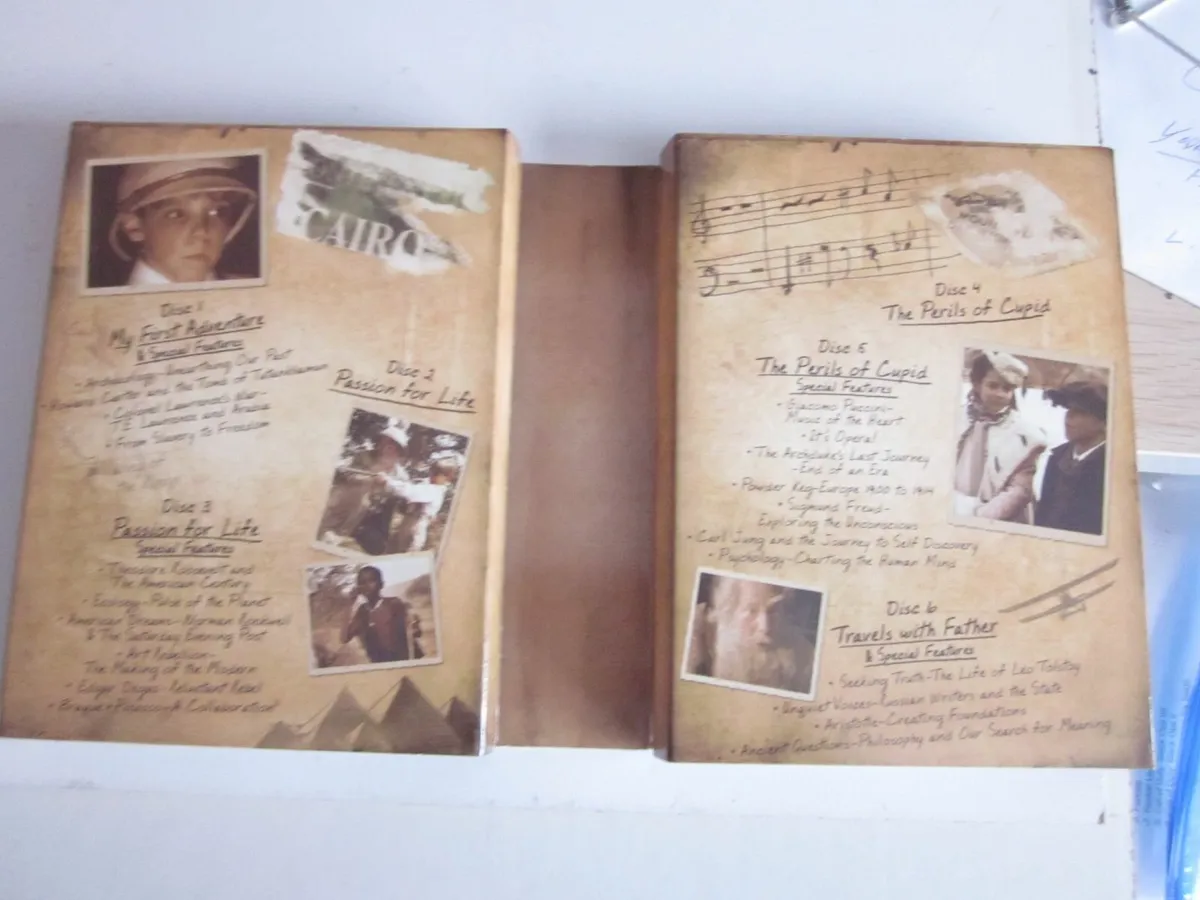 CAIRO
Disc 1
My First Adventure
& Special Features
- Archaeology-Unearthing Our Past
- Howard Carter and the Tomb of Tutankhamun
- Colonel Lawrence's War-
T.E. Lawrence and Arabia
- From Slavery to Freedom
Disc 2
Passion for Life
Disc 3
Passion for Life
Special Features
- Theodore Roosevelt and
The American Century
- Ecology-Pulse of the Planet
- American Dreams-Norman Rockwell
& The Saturday Evening Post
- Art Rebellion-
The Making of the Modern
- Edgar Degas-Reluctant Rebel
- Braque & Picasso-A Collaboration
Disc 4
The Perils of Cupid
Disc 5
The Perils of Cupid
Special Features
- Giacomo Puccini-
Music of the Heart
- It's Opera!
- The Archduke's Last Journey
-End of an Era
- Powder Keg-Europe 1900 to 1914
- Sigmund Freud-
Exploring the Unconscious
- Carl Jung and the Journey to Self Discovery
- Psychology-Charting the Human Mind
Disc 6
Travels with Father
& Special Features
- Seeking Truth-The Life of Leo Tolstoy
- Unquiet Voices-Russian Writers and the State
- Aristotle-Creating Foundations
- Ancient Questions-Philosophy and Our Search for Meaning